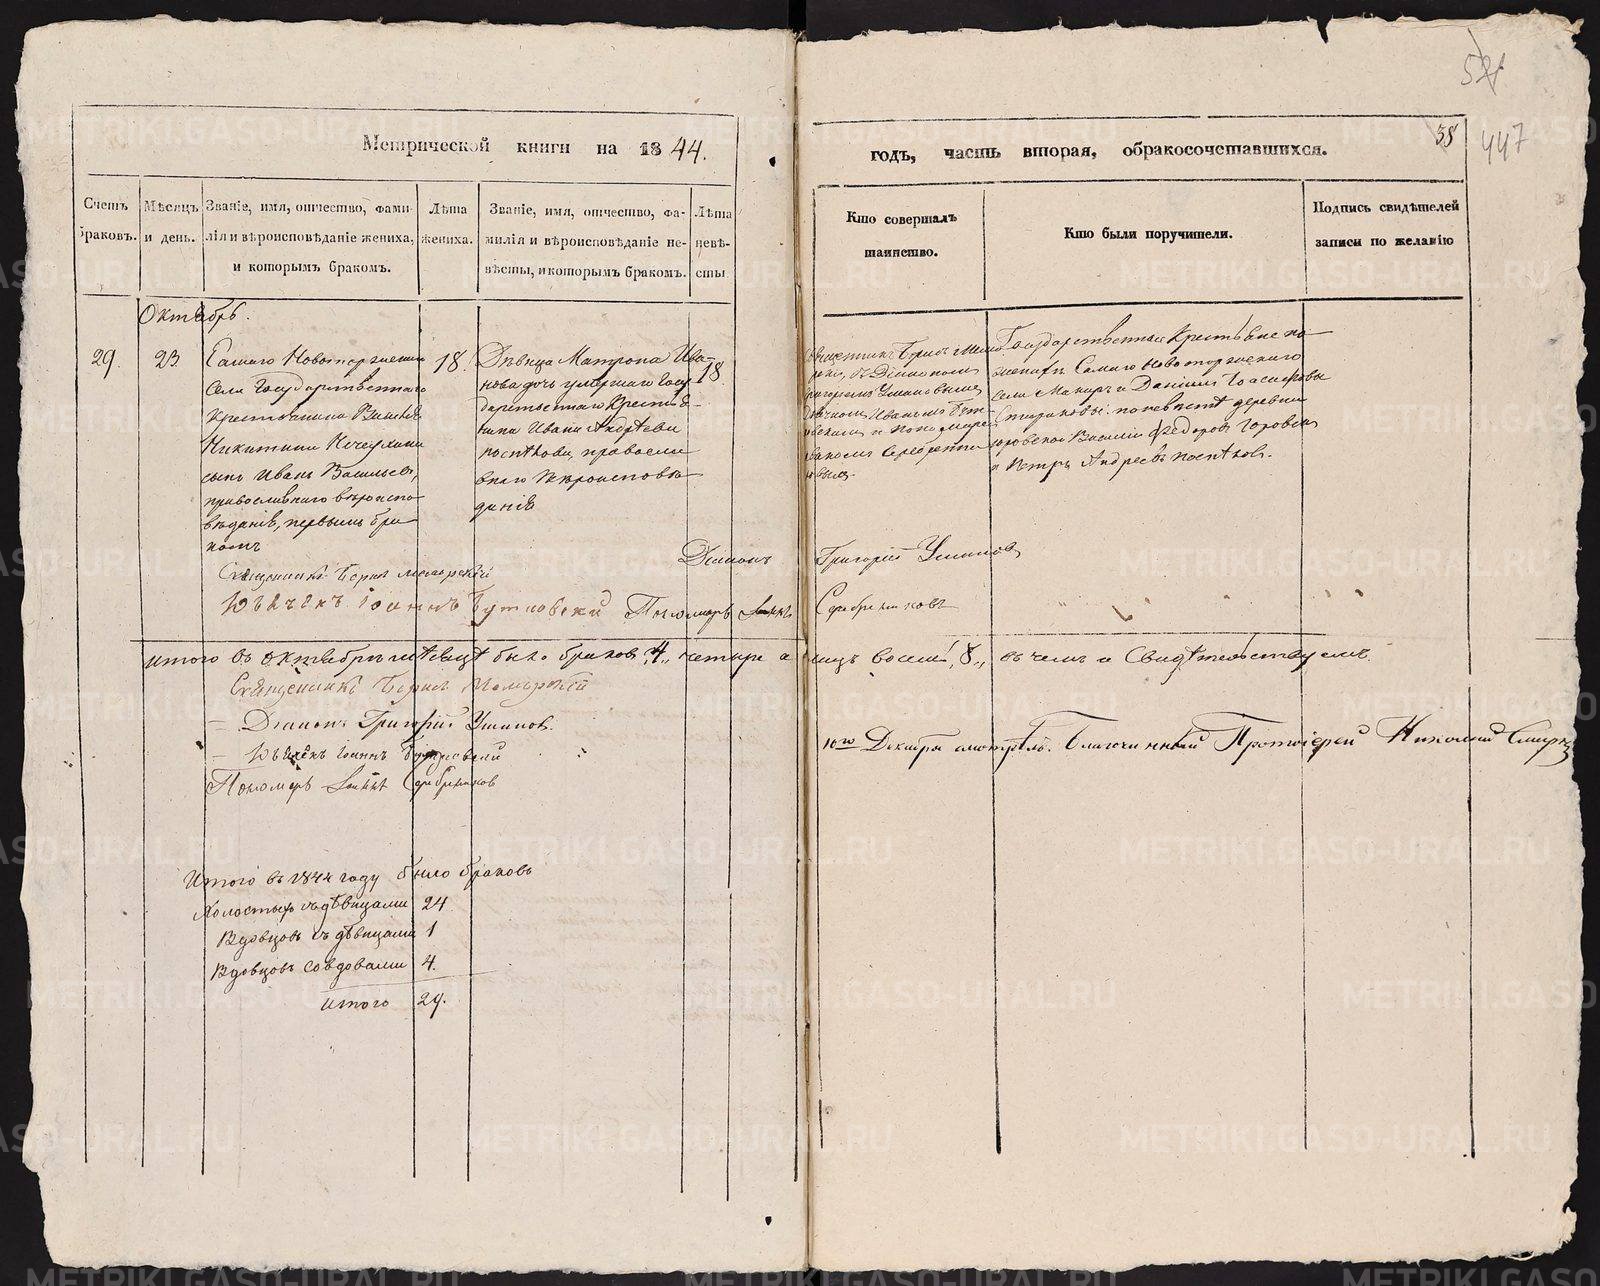 521
Метрической книги на 1844.
годъ, часть вторая, обракосочетавшихся.
38
447
Счетъ браковъ.
Мѣсяцъ и день.
Званіе, имя, отчество, фами-
лія и вѣроисповѣданіе жениха,
и которымъ бракомъ.
Лѣта
жениха.
Званіе, имя, отчество, фа-
милія и вѣроисповѣданіе не-
вѣсты, и которымъ бракомъ.
Лѣта
невѣ-
сты
Кто совершалъ
таинство.
Кто были поручители.
Подпись свидѣтелей
записи по желанію
Октябрь.
29.
23.
Самаго Новоторжскаго
Села Государственнаго
Крестьянина Василья
Никитина
сынъ Иванъ Васильевъ,
православнаго вѣроиспо
вѣданія, первымъ бра
комъ
18.
Дѣвица Матрона Ива-
нова дочь умершаго Госу
дарственнаго Крестья-
нина Ивана Андреева
Поспѣлова, правосла
внаго вѣроисповѣ
данія
18
Священникъ Борисъ
съ Діакономъ
Григоріемъ Ушаковымъ
Дьячкомъ Иваномъ
и Пономаремъ
Серебренни
ковымъ.
Государственные Крестьяне по
женихѣ Самаго Новоторжскаго
села Макаръ и Даніилъ
по невѣстѣ деревни
Василій Федоровъ
и Петръ Андреевъ Поспѣловъ.
Священникъ Борисъ
Діаконъ Григорій Ушаковъ
Дьячекъ Іоаннъ Бутковскій Пономарь Серебрениковъ
Итого въ октябрѣ мѣсяцѣ было браковъ „4„ четыре а лицъ восемь „8„ въ чемъ и Свидѣтельствуемъ.
Священникъ Борисъ
– Діаконъ Григорій Ушаковъ.
– Дьячекъ Іоаннъ Бутковскій
Пономарь Серебрениковъ
10го Декабря смотрѣлъ. Благочинный Протоіерей Николай
Итого въ 1844 году было браковъ
Холостых съ дѣвицами 24
Вдовцовъ съ дѣвицами 1
Вдовцовъ со вдовами 4.
Итого 29.
METRIKI.GASO-URAL.RU